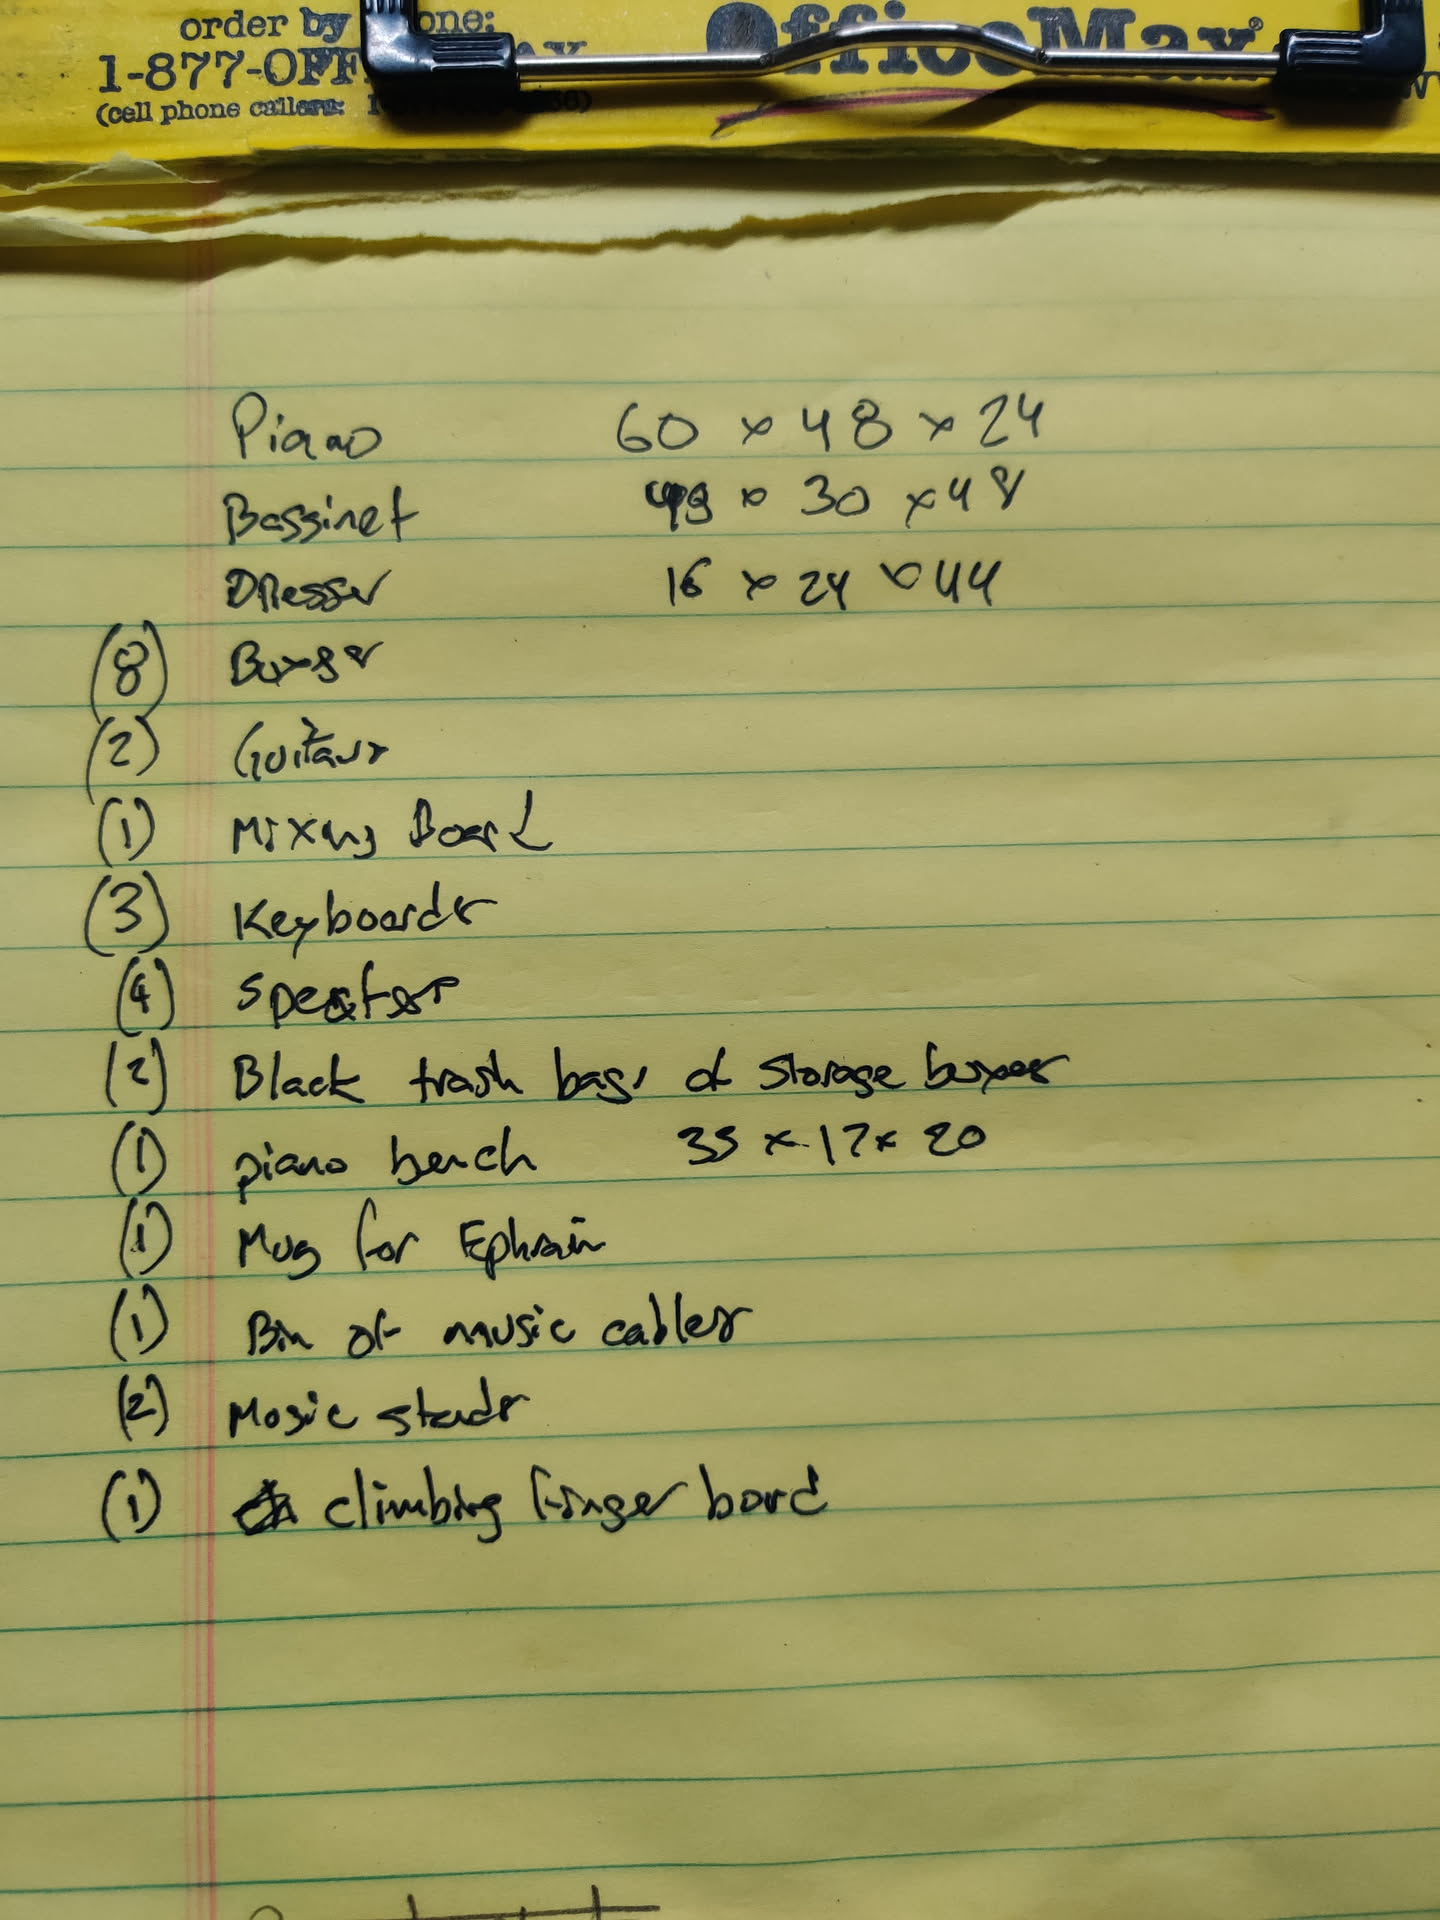 order by one:
OfficeMax®
1-877-OFF
(cell phone callers:
Piano 60 x 48 x 24
Bassinet 30 x 48
Dresser 16 x 24 x 44
(8) Boxes
(2) Guitars
(1) Mixing Board
(3) Keyboards
(4) Speakers
(2) Black trash bags of storage boxes
(1) piano bench 35 x 17 x 20
(1) Mug for Ephraim
(1) Bin of music cables
(2) Music stands
(1) climbing finger bord